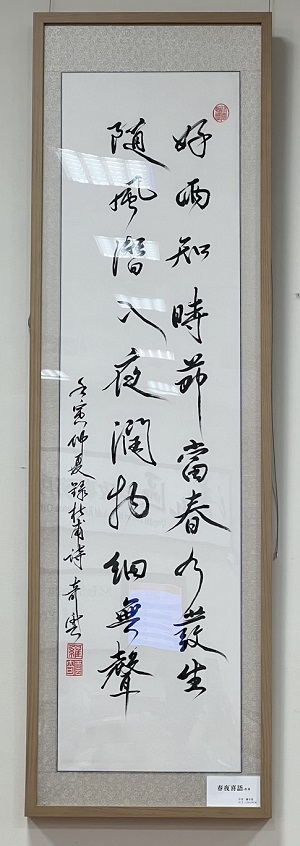 好雨知時節當春乃發生
隨風潛入夜潤物細無聲
壬寅仲夏錄杜甫詩
春夜喜語